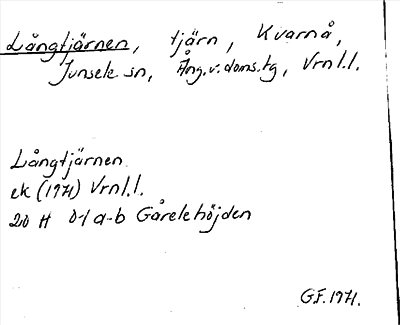 Långtjärnen, tjärn, Kvarnå,
Junsele sn, Ång.v.doms.tg, Vrnl.l.
Långtjärnen
ek (1971) Vrnl.l.
20 H 0-1 a-b Gårelehöjden
G.F. 1971.